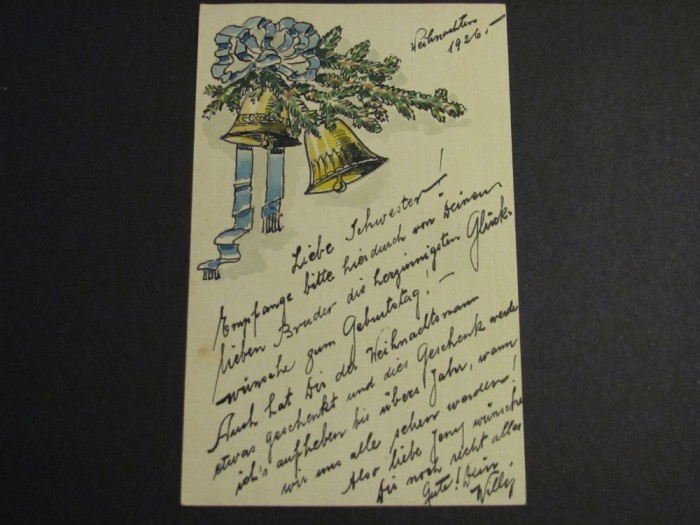 Weihnachten
1926.-
Liebe Schwester!
Empfange bitte hierdurch von Deinem
lieben Bruder die herzinnigsten Glück-
wünsche zum Geburtstag!-
Auch hat Dir der Weihnachtsmann
etwas geschenkt und dies Geschenk werde
ich's aufheben bis übers Jahr, wann
wir uns alle sehen werden!
Also liebe Jeny wünsche
Dir noch recht alles
Gute! Dein
Willy